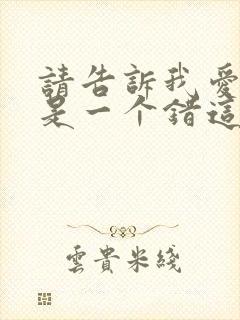 請告訴我愛
是一个錯這
雲貴米綫